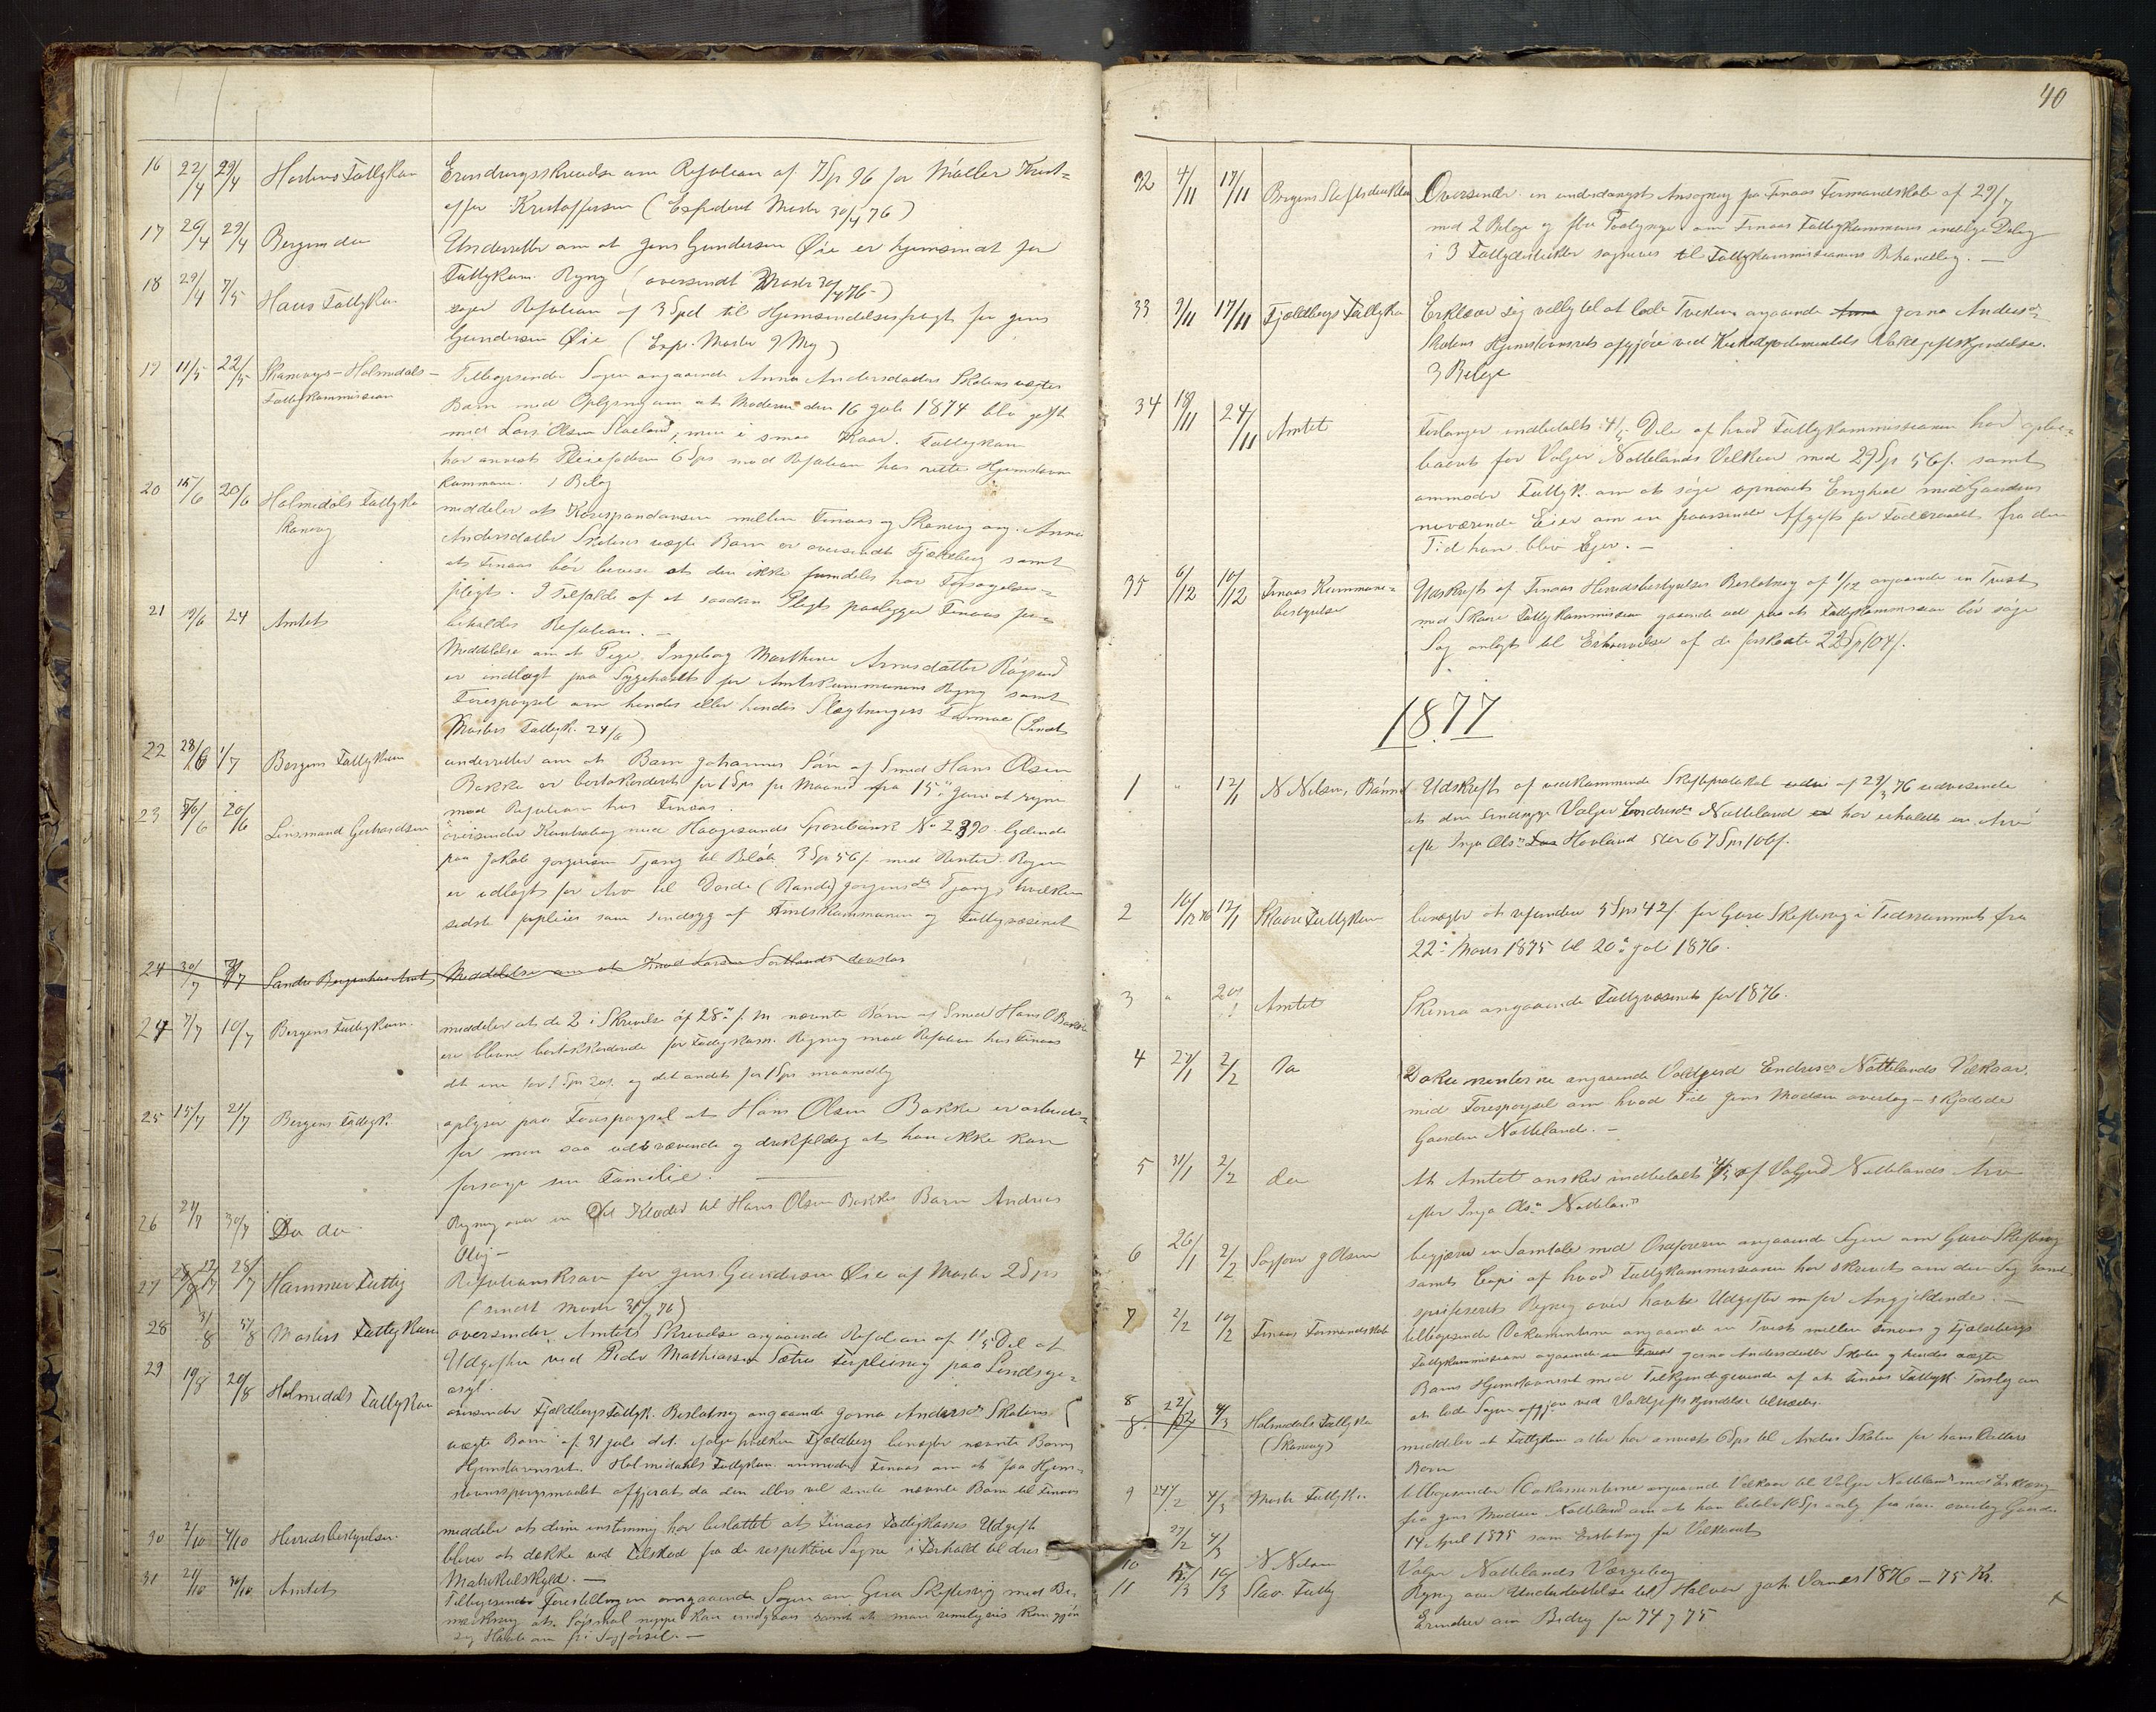 16 22/4 29/4 Mosters Fattigkom Erindringsskrivelse om Refusion af 7Sp 96 for Møller Krist=
offer Kristoffersen (Expederet Moster 30/4 76)
17 26/4 29/4 Bergens do Underretter om at Jens Gundersen Øie er hjemsendt for
Fattigkom. Regng (oversendt Moster 30/4 76)
18 29/4 7/5 Haus Fattigkom søger Refusion af 3 Spd til Hjemsendelsesfragt for Jens
Gundersen Øie (Exp. Moster 9 Mai)
19 11/5 22/5 Skånevigs-Holmedals-
Fattigkommission
Tilbagesender Sagen angaaende Anna Andersdatter Skolens uægte
Barn med Oplysning om at Moderen den 16 Juli 1874 blev gift
med Lars Olsen Skaaland, men i smaa Kaar. Fattigkom
har anvist Pleiefaderen 6 Sps mod Refusion hos rette Hjemstavns
kommune. 1 Bilag
20 15/6 20/6 Holmedals Fattigko
Skånevig
meddeler at Korrespondancen mellem Finaas og Skånevig ang. Anna
Andersdatter Skolens uægte Barn er oversendt Fjeldberg samt
at Finaas bør bevise at den ikke fremdeles har Forsørgelses=
pligt. I Tilfælde af at saadan Pligt paaligger Finaas for=
beholdes Refusion. -
21 19/6 24 Amtet Meddelelse om at Pige Ingeborg Marthine Arnesdatter Røgsund
er indlagt paa Sygehuset for Amtskommunens Regng samt
Forespørgsel om hendes eller hendes Slægtningers Formue (Sendt
Mosters Fattigk. 24/6)
22 28/6 1/7 Bergens Fattigkom underretter om at Barn Johannes Søn af Smed Hans Olsen
Bakke er bortakkorderet for 1 Sps pr Maaned fra 15de Juni at regne
mod Refusion hos Finaas.
23 20/6 Lensmand Gerhardsen oversender Kontrabog med Haugesunds Sparebank No 2390 lydende
paa Jakob Jørgensen Tjong til Beløb 3 Sp 56 s. med Renter. Bogen
er udlagt for Arv til Dorde (Rande) Jørgensdr Tjong, hvilken
sidste forpleies som sindssyg af Amtskommunen og Fattigvæsenet
24 30/7 Søndre Bergenhus Amt Meddelelse om at Knud Larsen Sortlands
24 7/7 10/7 Bergens Fattigkom. meddeler at de 2 i Skrivelse af 28de f. M. nævnte Børn af Smed Hans O Bakke
ere blevne bortakkorderede for Fattigkom. Regng mod Refusion hos Finaas
det ene for 1 Sps 20 s. og det andet for 1 Sps maanedlig
25 15/7 21/7 Bergens Fattigk. oplyser paa Forespørgsel at Hans Olsen Bakke er arbeids=
før men saa udsvævende og drikfældig at han ikke kan
forsørge sin Familie.
26 24/7 30/7 Do do Regng over en Del Klæder til Hans Olsen Bakkes Barn Andreas
Olai -
27 28/7 Hammer Fattig Refusionskrav for Jens Gundersen Øie af Moster 2 Sps
(sendt Moster 31/7 76)
28 31/8 Mosters Fattigkom oversender Amtets Skrivelse angaaende Refusion af 1/5 Del af
Udgifter ved Peder Mathiassen Sætres Forpleining paa Sindssyge=
asyl.
29 19/8 20/8 Holmedals Fattigkom oversender Fjeldbergs Fattigk. Beslutning angaaende Gorna Andersdr Skolens
uægte Barn af 31 Juli d.A. ifølge hvilken Fjeldberg benægter nævnte Barns
Hjemstavnsret. Holmedals Fattigkom. anmoder Finaas om at faa Hjem=
stavnsspørgsmaalet afgjort da den ellers vil sende nævnte Barn til Finaas
30 2/10 4/10 Herredsbestyrelsen meddeler at denne enstemmig har besluttet at Finaas Fattigkasses Udgift
bliver at dække ved Tilskud fra de respektive Sogne i Forhold til dres
Matrikulskyld. -
31 21/10 30/10 Amtet Tilbagesender Forestillingen angaaende Sagen om Guro Skeftesvig med Be=
mærkning at Søgsmaal neppe kan undgaaes samt at man rimeligvis kan gjøre
sig Haab om fri Sagførsel. -
40
32 4/11 17/11 Bergens Stiftsdirektion Oversender en underdanigst Ansøgning fra Finaas Formandskab af 29/7
med 2 Bilage og flere Paategninger om Finaas Fattigkommunes endelige Deling
i 3 Fattigdistrikter sognevis til Fattigkommissionens Behandling. -
33 9/11 17/11 Fjeldbergs Fattigkom Erklærer sig villig til at lade Tvisten angaaende Gorna Andersdr
Skolens Hjemstavnsret afgjøre ved Kirkedepartementets Voldgiftskjendelse.
3 Bilage
34 18/11 24/11 Amtet Forlanger indbetalt 4/5 Dele af hvad Fattigkommissionen har opbe=
baaret for Valgjer Nattelands Vilkaar med 29 Sp 56 s. samt
anmoder Fattigk. om at søge opnaaet Enighed med Gaardens
nuværende Eier om en passende Afgift for Føderaadet fra den
Tid han blev Eier. -
35 6/12 10/12 Finaas Kommune=
bestyrelse
Udskrift af Finaas Herredsbestyrelses Beslutning af 1/12 angaaende en Tvist
med Skaare Fattigkommission gaaende ud paa at Fattigkommissionen bør søge
Sag anlagt til Erhvervelse af de forskudte 22 Sp 104 s.
1877
1 " 12/1 N Nilsen, Bømmel Udskrift af vedkommende Skifteprotokol af 23/3 76 udvisende
at den sindssyge Valgjer Endresdr Natteland har erholdt en Arv
efter Inga Olsdr Hovland stor 67 Sps 106 s.
2 16/12 76 12/1 Skaare Fattigkom benægter at refundere 5 Sps 42 s for Guro Skeftesvig i Tidsrummet fra
22de Mars 1875 til 20de Juli 1876.
3 " 20/1 Amtet Skema angaaende Fattigvæsenet for 1876.
4 27/1 2/2 Do Dokumenterne angaaende Valdgerd Endresdr Nattelands Vilkaar,
med Forespørgsel om hvad Tid Jens Madsen overtog - skjødede
Gaarden Natteland. -
5 31/1 2/2 do At Amtet ønsker indbetalt 4/5 af Valgerd Nattelands Arv
efter Inga Olsdr Natteland
6 26/1 2/2 Sagfører J Olsen begjærer en Samtale med Ordføreren angaaende Sagen om Guro Skeftesvig
samt Copi af hvad Fattigkommissionen har skrevet om den Sag samt
specificeret Regng over havte Udgifter for Angjeldende. -
7 2/2 10/2 Finaas Formandskab tilbagesender Dokumenterne angaaende en Tvist mellem Finaas og Fjeldbergs
Fattigkommission angaaende Gorna Andersdatter Skolen og hendes uægte
Barns Hjemstavnsret med Tilkjendegivende af at Finaas Fattigk. Forslag om
at lade Sagen afgjøre ved Voldgiftskjendelse tiltrædes.
8 22/2 4/3 Holmedals Fattigko
(Skånevig)
meddeler at Fattigkom atter har anvist 6 Sps til Anders Skolen for hans Datters
Barn
9 24/2 4/3 Moster Fattigko. tilbagesender Dokumenterne angaaende Vilkaar til Valgjer Natteland med Erklæring
fra Jens Madsen Natteland om at han betaler 16 Sp aarlig fra han overtog Gaarden
14 April 1875 som Erstatning for Vilkaaret
10 27/2 4/3 N Nilsen Valgjer Nattelands Værgebog
11 10/3 Stav Fattig Regng over Understøttelse til Halvor Joh. Vernes 1876 - 75 Kr.
Erindrer om Bidrag for 74 og 75.